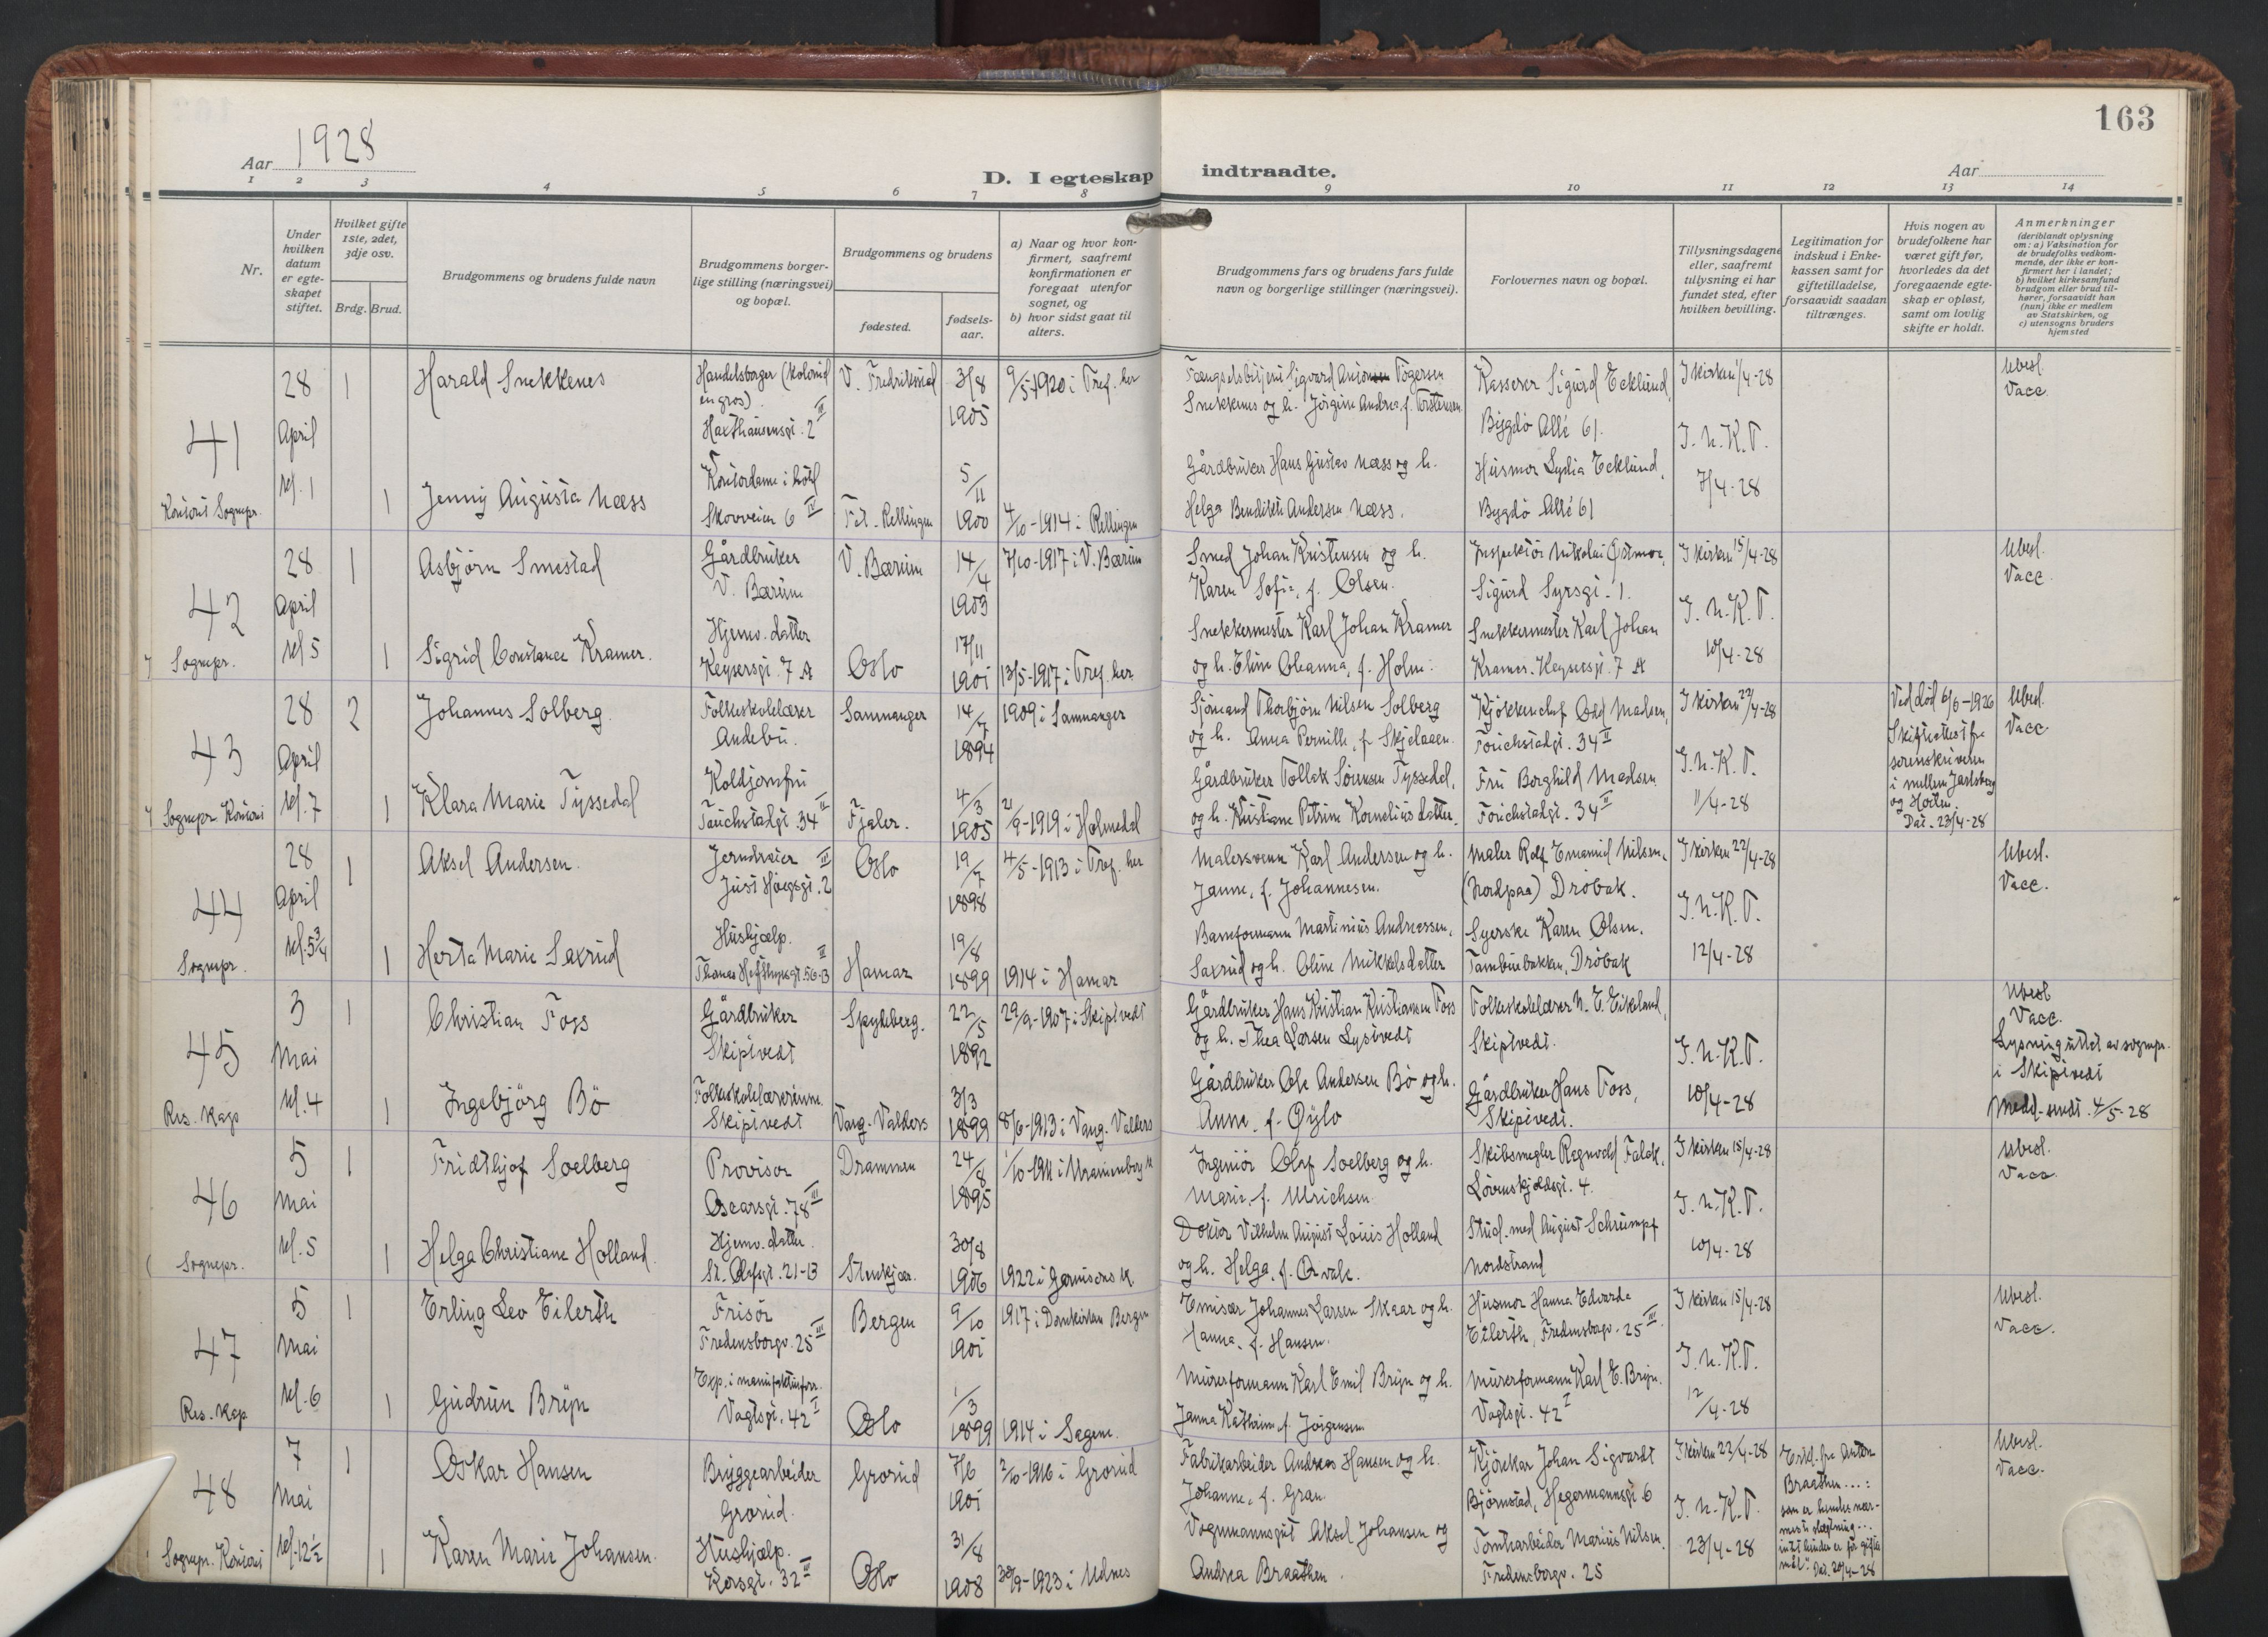 163
Aar 1928
D. I egteskap indtraadte.
Aar
1 2 3 4 5 6 7 8 9 10 11 12 13 14
Nr.
Under hvilken datum er egteskapet stiftet.
Hvilket gifte 1ste, 2det, 3dje osv.
Brdg. Brud.
Brudgommens og brudens fulde navn
Brudgommens borgerlige stilling (næringsvei) og bopæl.
Brudgommens og brudens
fødested.
fødselsaar.
a) Naar og hvor konfirmert, saafremt konfirmationen er foregaat utenfor sognet, og
b) hvor sidst gaat til alters.
Brudgommens fars og brudens fars fulde navn og borgerlige stillinger (næringsvei).
Forlovernes navn og bopæl.
Tillysningsdagene eller, saafremt tillysning ei har fundet sted, efter hvilken bevilling.
Legitimation for indskud i Enkekassen samt for giftetilladelse, forsaavidt saadan tiltrænges.
Hvis nogen av brudefolkene har været gift før, hvorledes da det foregaaende egteskap er opløst, samt om lovlig skifte er holdt.
Anmerkninger
(deriblandt oplysning om: a) Vaksination for de brudefolks vedkommende, der ikke er konfirmert her i landet;
b) hvilket kirkesamfund brudgom eller brud tilhører, forsaavidt han (hun) ikke er medlem av Statskirken, og
c) utensogns bruders hjemsted
41
28 April kl. 1
Kontoret Sognepr.
1 Harald Snekkenes
Handelsborger (kolonial en gros). Haxthausensgt. 2 III
V. Fredrikstad
3/8 1905
9/5-1920 i Tref. her
Fængselsbetjent Sigvard Antonsen Togersen
Snekkenes og h. Jørgine Andrea, f. Torstensen
Kasserer Sigurd Ecklund,
Bygdø Allé 61.
I kirken 1/4-28
I. N. K. T.
7/4-28
Ubesl.
Vacc.
1 Jenny Augusta Næss
Kontordame i hotel
Skovveien 6 IV
Fet. Rellingen
5/11 1900
4/10-1914 i Rellingen
Gårdbruker Hans Gustav Næss og h.
Helga Bendikte Andersen Næss.
Husmor Lydia Ecklund,
Bygdø Allé 61
42
28 April kl 5
Sognepr.
1 Asbjørn Smestad
Gårdbruker
V. Bærum
V. Bærum
14/4 1903
7/10-1917 i V. Bærum
Smed Johan Kristensen og h.
Karen Sofie, f. Olsen.
Inspektør Nikolai Østmoe,
Sigurd Syrsgt. 1.
I kirken 15/4-28
I. N. K. T.
10/4-28
Ubesl.
Vacc.
1 Sigrid Constance Kramer.
Hjemv. datter
Keysersgt. 7 A
Oslo
17/11 1901
13/5-1917 i Tref. her
Snekkermester Karl Johan Kramer
og h. Eline Oleanna, f. Holm.
Snekkermester Karl Johan
Kramer. Keysersgt. 7 A
43
28 April kl. 7
Sognepr. Kontoret
2 Johannes Solberg.
Folkeskolelærer
Andebu.
Samnanger
14/7 1894
1909 i Samnanger
Sjømand Thorbjørn Nilsen Solberg
og h. Anna Pernille, f. Skjelaaen.
Kjøkkenchef Odd Madsen,
Tourichstadgt. 34 II
I kirken 22/4-28
I. N. K. T.
11/4-28
Ved død 6/6-1926
Skifteattest fra
sorenskriveren
i mellem Jarlsberg
og Horten.
Dat. 23/4-28
Ubesl.
Vacc.
1 Klara Marie Tyssedal
Koldjomfru
Tourichstadgt. 34 II
Fjaler.
4/3 1905
21/9-1919 i Holmedal
Gårdbruker Tollak Sørensen Tyssedal,
og h. Kristiane Petrine Korneliusdatter.
Fru Borghild Madsen
Tourichstadgt. 34 II
44
28 April kl. 5 3/4
Sognepr.
1 Aksel Andersen.
Jerndreier
Just Høegsgt. 2 III
Oslo
19/7 1898
4/5-1913 i Tref. her
Malersvenn Karl Andersen og h.
Janne, f. Johannesen.
Maler Rolf Emanuel Nilsen,
(Nordpaa) Drøbak.
I kirken 22/4-28
I. N. K. T.
12/4-28
Ubesl.
Vacc.
1 Herta Marie Saxrud
Hushjælp.
Thomas Hefthyesgt. 56-B II
Hamar
19/8 1899
1914 i Hamar
Baneformann Martinius Andreassen,
Saxrud og h. Oline Mikkelsdatter
Syerske Karen Olsen.
Tamburbakken, Drøbak
45
3 Mai kl. 4
Res. Kap
1 Christian Foss
Gårdbruker
Skiptvedt
Spydeberg.
22/5 1892
29/9-1907 i Skiptvedt
Gårdbruker Hans Kristian Kristiansen Foss
og h. Thea Larsen Lystvedt
Folkeskolelærer N. E. Eikeland,
Skiptvedt.
I. N. K. T.
10/4-28
Ubesl
Vacc.
Lysning uttat av sognepr.
i Skiptvedt
Medd. sendt. 4/5-28
1 Ingebjørg Bö
Folkeskolelærerinne.
Skiptvedt
Vang. Valders
3/3 1899
8/6-1913 i Vang. Valders
Gårdbruker Ole Andersen Bö og h.
Anne, f. Øylo
Gårdbruker Hans Foss,
Skiptvedt.
46
5 Mai kl. 5
Sognepr.
1 Fridthjof Soelberg
Provisor
Oscarsgt. 78 III
Drammen
24/8 1895
1/10-1911 i Uranienborg k
Ingeniør Olaf Soelberg og h.
Marie, f. Ulrichsen.
Skibsmegler Regnvald Falck,
Løvenskjoldsgt. 4.
I kirken 15/4-28
I. N. K. T.
10/4-28
Ubesl.
Vacc.
1 Helga Christiane Holland.
Hjemv. datter.
St. Olafsgt. 21-B
Stenkjær.
30/8 1906
1922 i Garnisons k.
Doktor Vilhelm August Louis Holland
og h. Helga, f. Qvale.
Stud. med August Schrumpf
Nordstrand
47
5 Mai kl. 6
Res. Kap
1 Erling Leo Eilerth
Frisør
Fredensborgv. 25 III
Bergen
9/10 1901
1917 i Domkirken Bergen
Emisær Johannes Larsen Skaar og h.
Hanna, f. Hansen.
Husmor Hanna Edvarda
Eilerth, Fredensborgv. 25 III
I kirken 15/4-28
I. N. K. T.
12/4-28
Ubesl.
Vacc.
1 Gudrun Bryn
Exp. i manufakturforr.
Vogtsgt. 42 I
Oslo
1/3 1899
1914 i Sagene.
Murerformann Karl Emil Bryn og h.
Janna Kathrine f. Jørgensen
Murerformann Karl E. Bryn.
Vogtsgt. 42 I
48
7 Mai kl. 12 1/2
Sognepr. Kontoret
1 Oskar Hansen
Bryggearbeider
Grorud.
Grorud
7/6 1901
2/10-1916 i Grorud
Fabrikarbeider Andreas Hansen og h.
Johanne, f. Gran.
Kjørekar Johan Sigvardt
Bjørnstad, Hegermannsgt. 6
I kirken 23/4-28
I. N. K. T.
23/4-28
Erkl. fra Anton
Braathen ...:
som er hendes nær-
meste slægtning...
intet hinder er for gifte
mål. Dat. 20/4-28
Ubesl.
Vacc.
1 Karen Marie Johansen.
Hushjælp.
Korsgt. 32 III
Oslo
31/8 1908
30/9-1923 i Udnes
Vognmannsgut Aksel Johansen og
Andrea Braathen.
Tomtearbeider Marius Nilsen.
Fredensborgv. 25